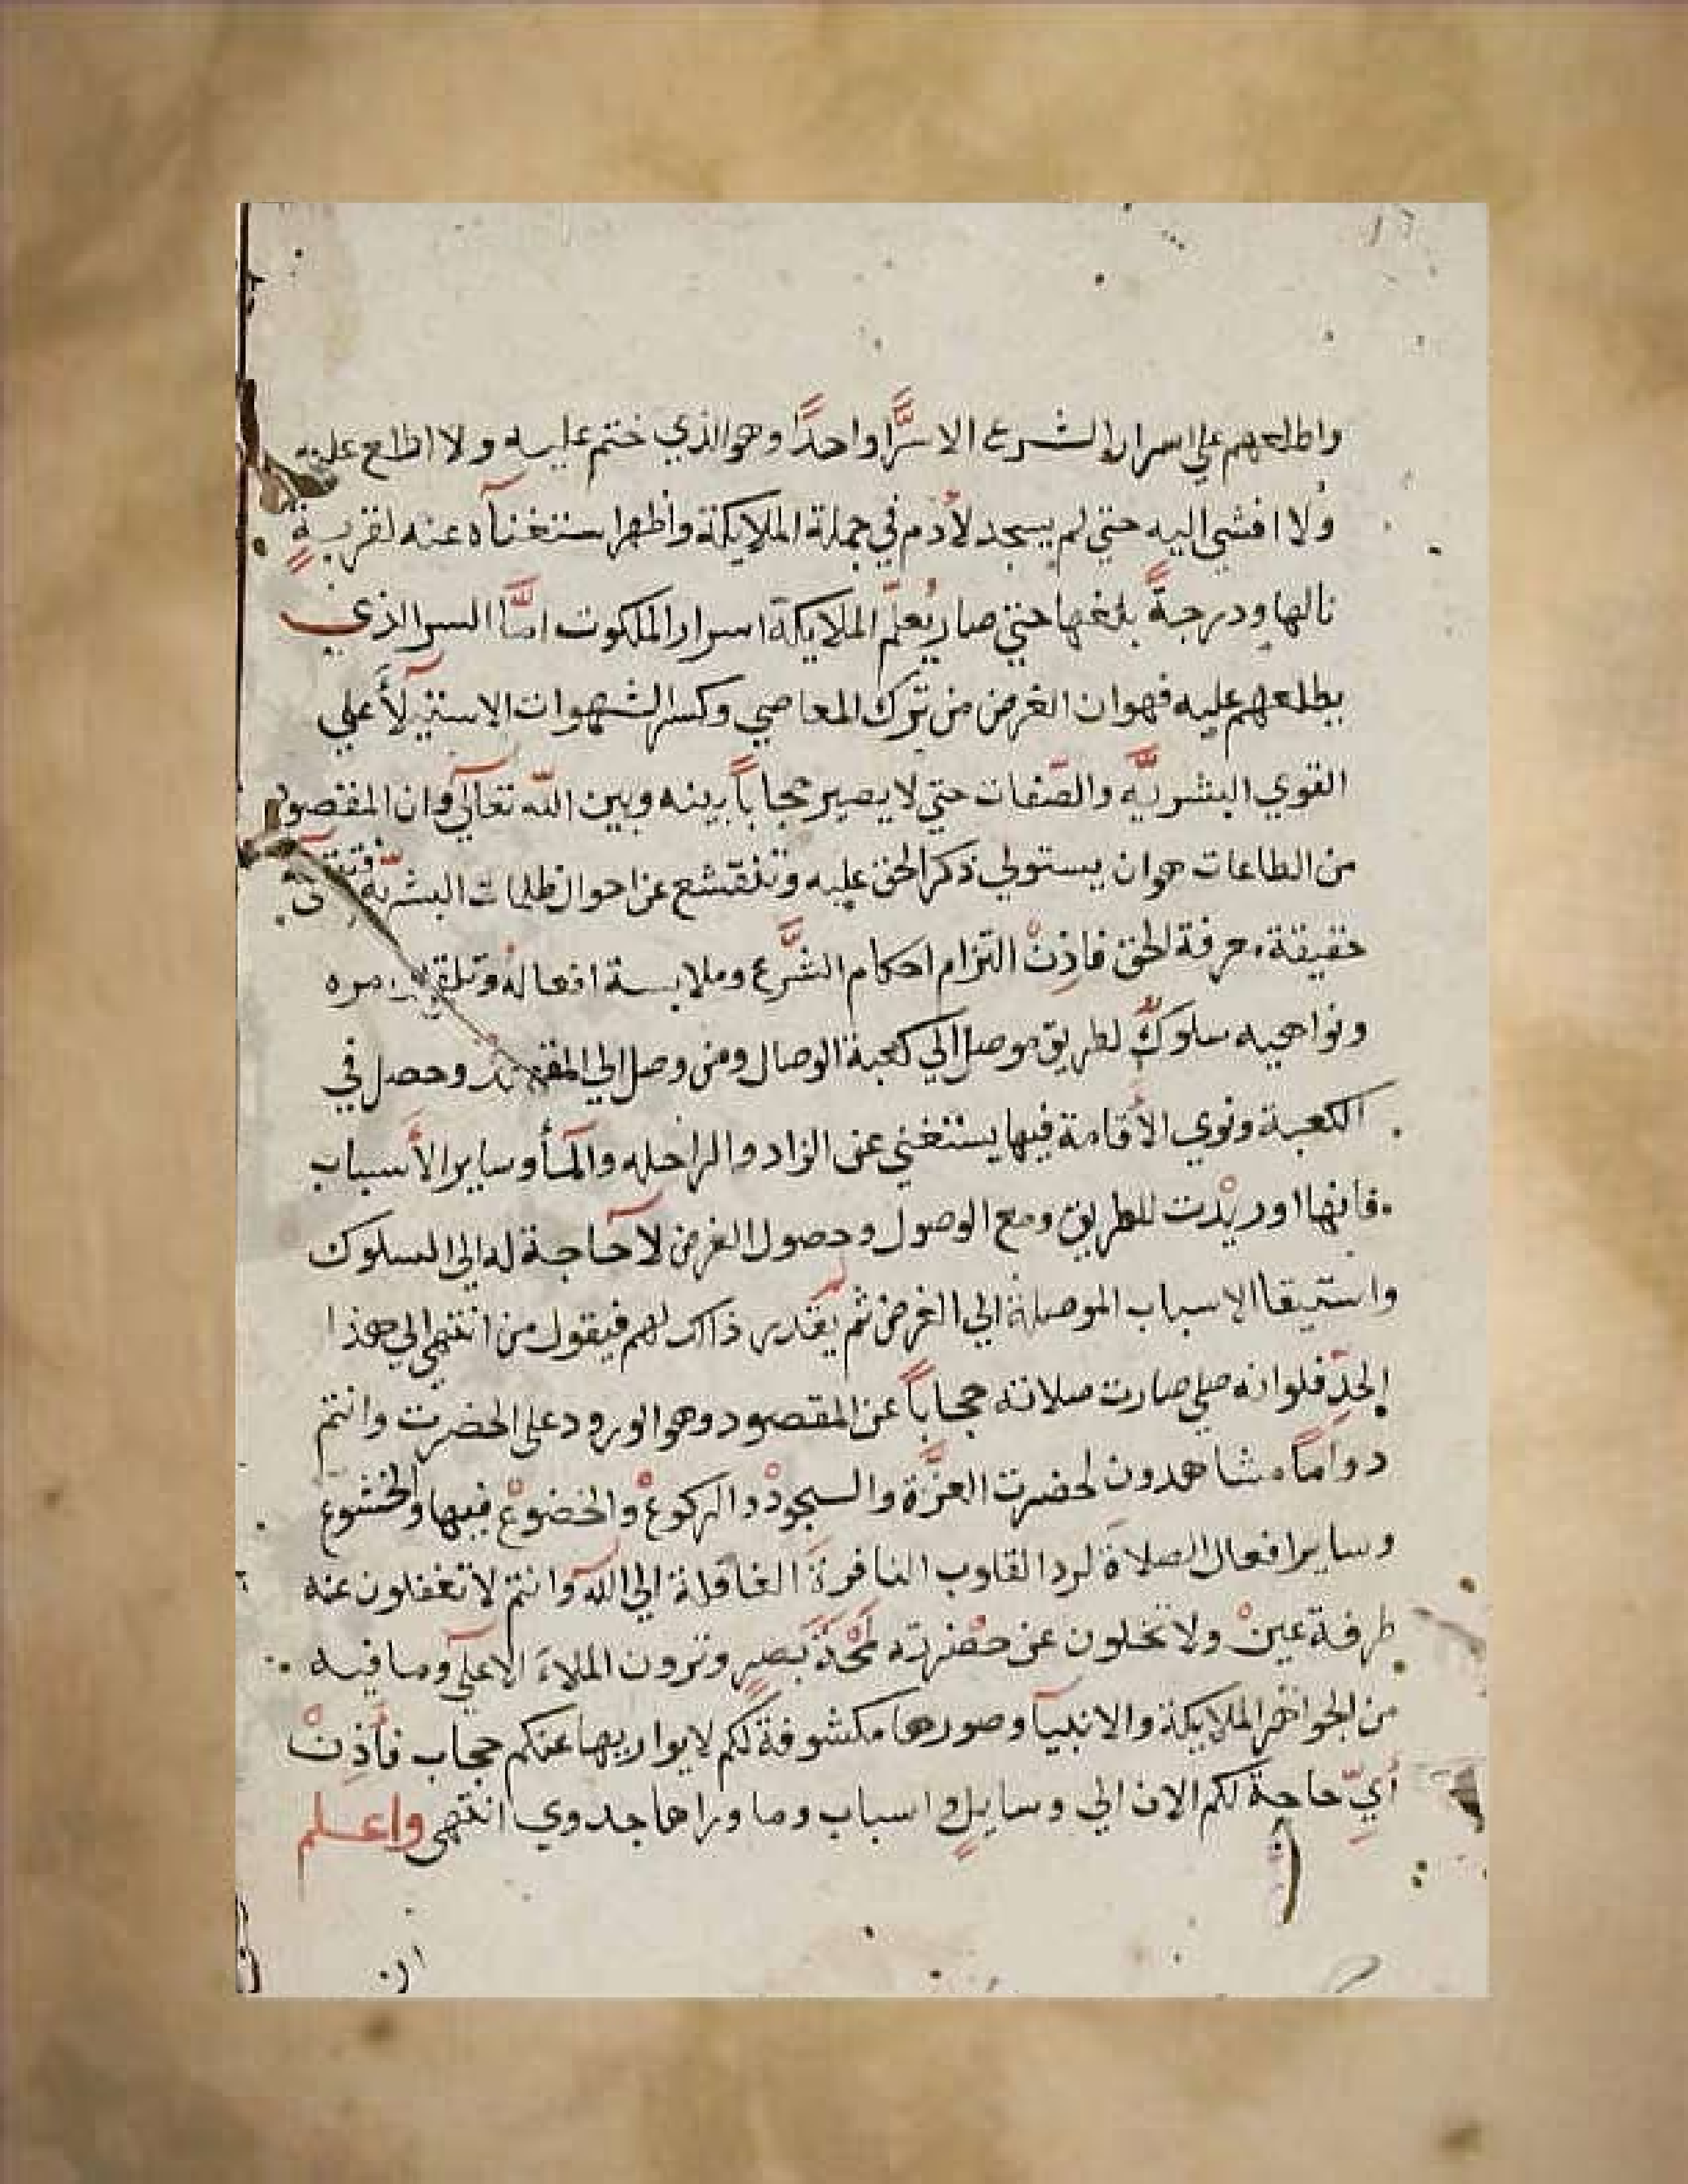 واطلعهم علي اسرار الشرع الا سرًّا واحدًا وهو الذي ختم عليه ولا اطلع عليه
ولا افشي اليه حتي لم يسجد لأدم في جملة الملايكة واظهر استغنآه عنه لقربةٍ
نالها ودرجةً بلغها حتي صار يُعلّم الملايكة اسرار الملكوت امَّا السر الذي
يطلعهم عليه فهو ان الغرض من ترك المعاصي وكسر الشهوات الاستيلآ علي
القوي البشريَّه والصّفات حتي لا يصير حجاباً بينه وبين اللّه تعآلي وان المقصود
من الطاعات هو ان يستولي ذكر الحق عليه وتنقّشع عن احوال ظلمات البشريّة
حقيقة معرفة الحق فاذِنْ التزام احكام الشَّرع وملابسة افعاله وتلقي امره
ونواهيه سلوكٌ لطريق موصل الي كعبة الوصال ومن وصل الي المقصد وحصل في
الكعبة ونوي الأقامة فيها يستغني عن الزاد والراحله والمآ وساير الأسباب
فانها اوريْدت للطريق ومع الوصول وحصول الغرض لا حآجة له الي السلوك
واستيقا الاسباب الموصلة الي الغرض ثم يُقدر ذالك لهم فيقول من انتهي الي هذا
الحدّ فلو انه صلي صارت صلاته حجاباً عن المقصود وهو الورود على الحضرت وانتم
دواماً مشاهدون لحضرت العزَّة والسجودْ والركوعْ والخضوعْ فيها والخشوع
وساير افعال الصلاة لرد القلوب النافرة الغافلة الي اللّه وانتم لا تغفلون عنه
طرفة عينْ ولا تخلون عن حضْرته لمْحَةَ بَصرٍ وترون الملاءَ الاعلي وما فيه
من الجواهر الملايكة والانبيآ وصورها مكشوفة لكم لا يواريها عنكم حجاب فأذِنْ
أيِّ حاجة لكم الان الي وسايلٍ واسباب وما وراها جدوي انتهى واعلم
ان